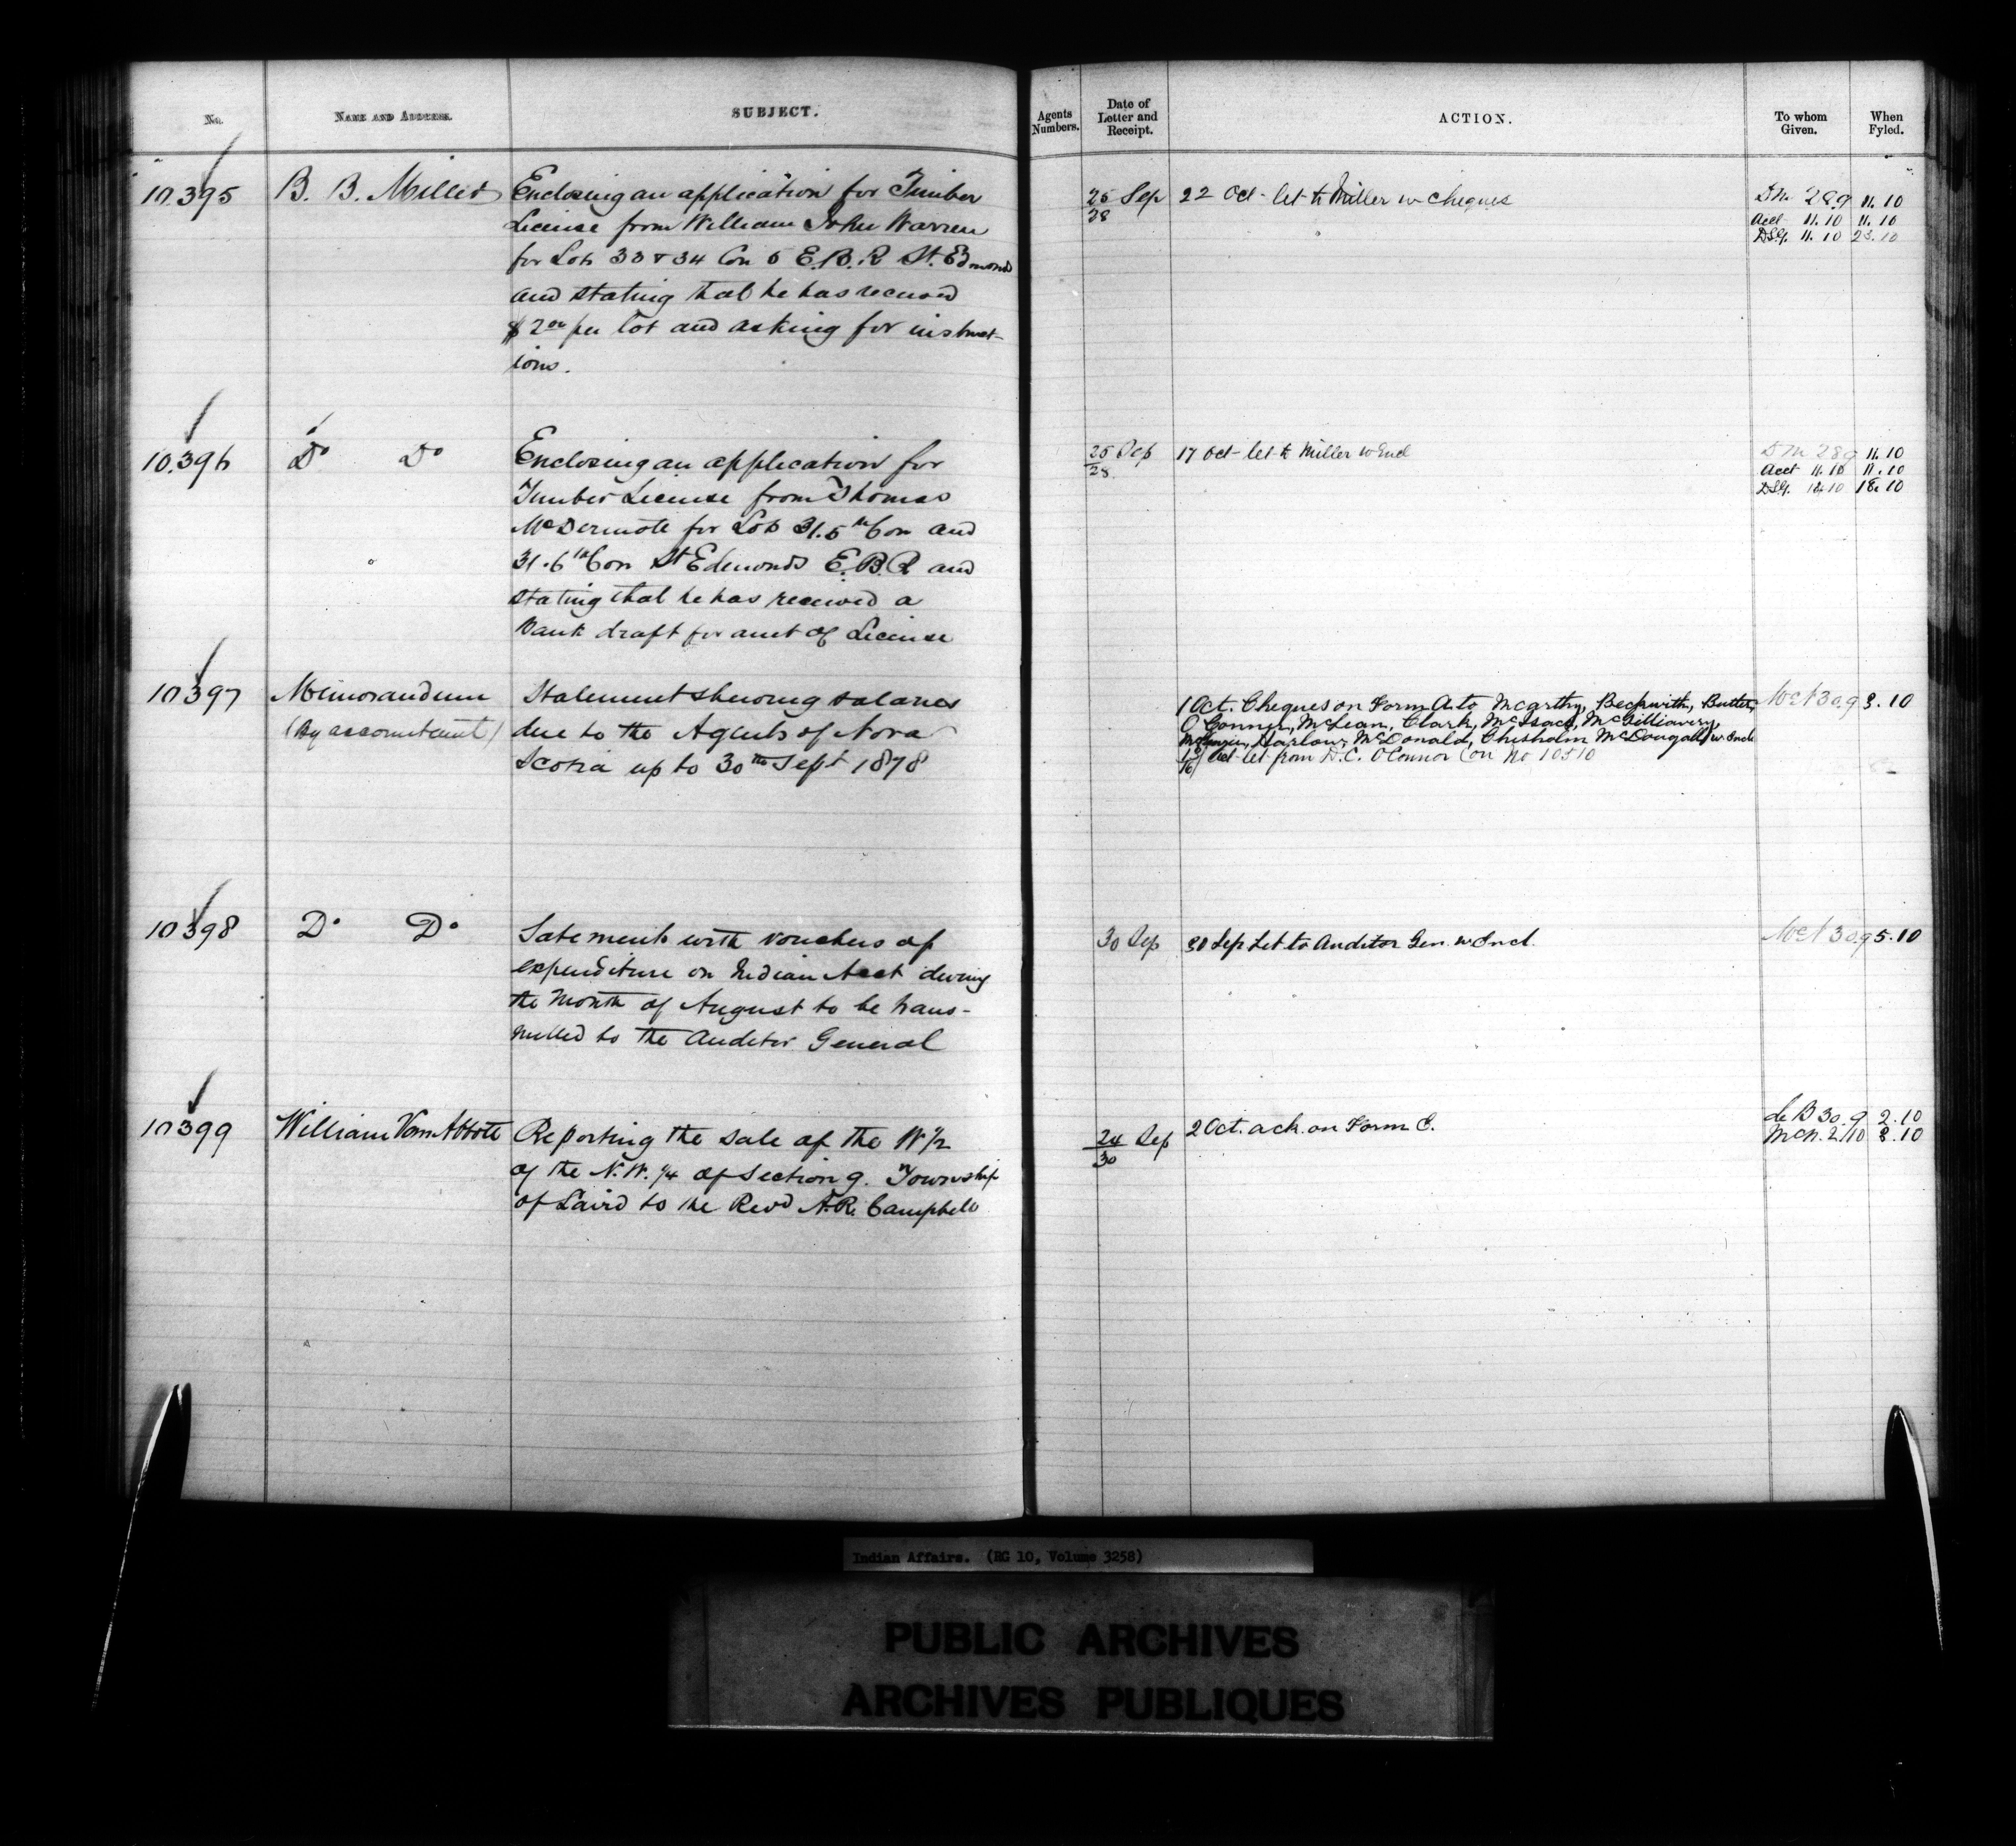 No. NAME AND ADDRESS. SUBJECT.
Agents Numbers. Date of Letter and Receipt. ACTION. To whom Given. When Fyled.
10395 B. B. Miller Enclosing an application for Timber
License from William John Warren
for Lots 33 & 34 Con 5 E.B.R St. Edmonds
and stating that he has received
$2 00 per lot and asking for instruct-
ions.
25/28 Sep 22 Oct - let to Miller w Cheques D.M. 28.9 11.10
Acct 11.10 11.10
DSG. 11.10 23.10
10.396 Do Do Enclosing an application for
Timber License from Thomas
McDermote for Lots 31.5th Con and
31.6th Con St Edmonds E.B.R and
stating that he has received a
Bank draft for amt of License
25/28 Sep 17 Oct - let to Miller w Encl D M 28.9 11.10
Acct 11.10 11.10
DSG. 10 18.10
10397 Memorandum Statement shewing salaries
(By accountant) due to the Agents of Nova
Scotia up to 30th Sept 1878
1 Oct. Cheques on Form A to Mcarthy, Beckwith, Butler,
O'Connor, McLean, Clark, McIsack, McGilliavery,
Harlow, McDonald, Chisholm McDougall w Encl
Oct - let from D.C. O'Connor on No 10510
30.9 3.10
10398 Do Do Satements with vouchers of
expenditure on Indian Acct during
the Month of August to be trans-
mitted to the Auditor General
30 Sep 30 Sep Let to Auditor Gen. w Incl. 30.9 5.10
10399 William Van Abbott Reporting the sale of the W 1/2
of the N.W. 1/4 of Section 9. Township
of Laird to the Revd A.R. Campbell
24/30 Sep 2 Oct. ack. on Form C. de B 30.9 2.10
McN. 2.10 3.10
Indian Affairs. (RG 10, Volume 3258)
PUBLIC ARCHIVES
ARCHIVES PUBLIQUES